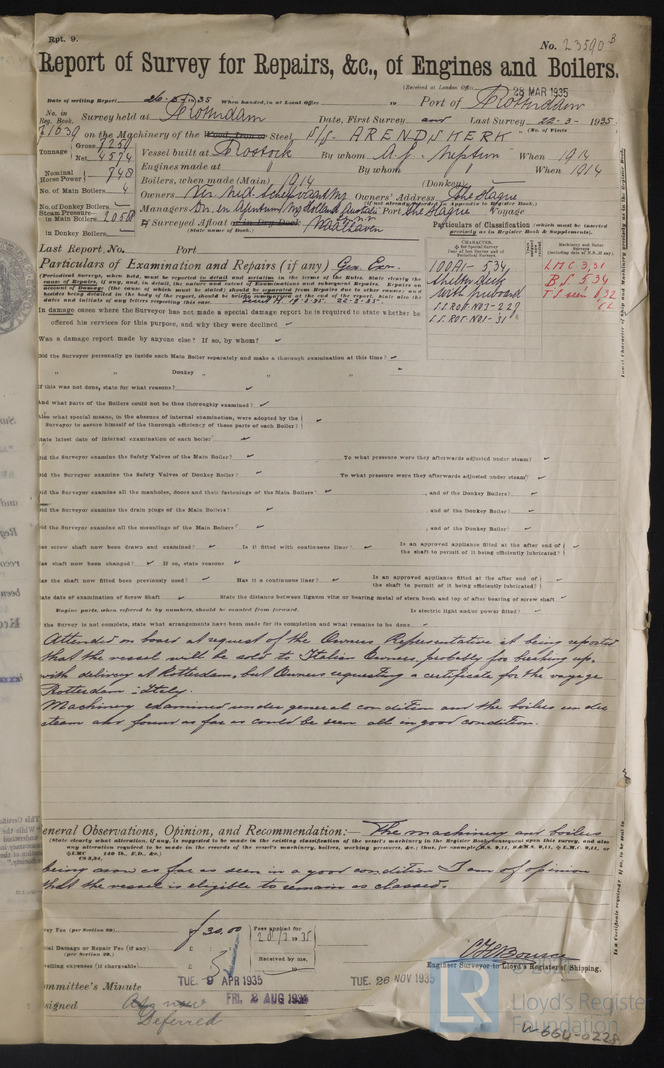 Rpt. 9.
No. 23590 B
Report of Survey for Repairs, &c., of Engines and Boilers.
(Received at London Office 28 MAR 1935
Date of writing Report 26-3-1935 When handed in at Local Office 19 Port of Rotterdam
No. in Reg. Book. Survey held at Rotterdam Date, First Survey and Last Survey 22-3-1935
71639 on the Machinery of the Wood, Iron or Steel S/S- ARENDSKERK (No. of Visits
Tonnage Gross 7250 Net 4574 Vessel built at Rostock By whom A.G. "Neptun" When 1914
Nominal Horse Power 748 Engines made at By whom When 1914
No. of Main Boilers 4 Boilers, when made (Main) 1914 (Donkey) —
No. of Donkey Boilers — Owners Owners' Address The Hague
(if not already recorded in Appendix to Register Book.)
Steam Pressure in Main Boilers 205 lb Managers Port The Hague Voyage
in Donkey Boilers — If Surveyed Afloat or in Dry Dock
(State name of Dock.) Waalhaven
Last Report, No. Port
Particulars of Classification (which must be inserted precisely as in Register Book & Supplements).
Particulars of Examination and Repairs (if any) Gen. Exn.
100A1- 5.34
Shelter deck
with freeboard
LMC 3,31
BS 5.34
TS seen
In damage cases where the Surveyor has not made a special damage report he is required to state whether he
offered his services for this purpose, and why they were declined
Was a damage report made by anyone else? If so, by whom?
Did the Surveyor personally go inside each Main Boiler separately and make a thorough examination at this time?
" " Donkey " " "
If this was not done, state for what reasons?
And what parts of the Boilers could not be thus thoroughly examined?
Also what special means, in the absence of internal examination, were adopted by the
Surveyor to assure himself of the thorough efficiency of these parts of each Boiler?
State latest date of internal examination of each boiler
Did the Surveyor examine the Safety Valves of the Main Boiler? To what pressure were they afterwards adjusted under steam?
Did the Surveyor examine the Safety Valves of Donkey Boiler? To what pressure were they afterwards adjusted under steam?
Did the Surveyor examine all the manholes, doors and their fastenings of the Main Boilers? , and of the Donkey Boilers?
Did the Surveyor examine the drain plugs of the Main Boilers? , and of the Donkey Boiler?
Did the Surveyor examine all the mountings of the Main Boilers? , and of the Donkey Boiler?
Has screw shaft now been drawn and examined? Is it fitted with continuous liner? Is an approved appliance fitted at the after end of
the shaft to permit of it being efficiently lubricated?
Has shaft now been changed? If so, state reasons
Has the shaft now fitted been previously used? Has it a continuous liner? Is an approved appliance fitted at the after end of
the shaft to permit of it being efficiently lubricated?
State date of examination of Screw Shaft State the distance between lignum vitæ or bearing metal of stern bush and top of after bearing of screw shaft
Engine parts, when referred to by numbers, should be counted from forward. Is electric light and/or power fitted?
If the Survey is not complete, state what arrangements have been made for its completion and what remains to be done
Attended on board at request of the Owners Representative it being reported
that the vessel will be sold to Italian Owners, probably for breaking up,
with delivery at Rotterdam, but Owners requesting a certificate for the voyage
Rotterdam : Italy.
Machinery examined under general condition and the boilers under
steam and found as far as could be seen all in good condition.
General Observations, Opinion, and Recommendation:— The machinery and boilers
(State clearly what alteration, if any, is suggested to be made in the existing classification of the vessel's machinery in the Register Book, consequent upon this survey, and also
any alteration required to be made in the records of the vessel's machinery, boilers, working pressure, &c.
being now as far as seen in a good condition I am of opinion
that the vessel is eligible to remain as classed.
Survey Fee (per Section 29) £ 30.00 Fees applied for
26/3 1935
Special Damage or Repair Fee (if any) (per Section 29.) £ Received by me,
Travelling expenses (if chargeable) £ 19
Engineer Surveyor to Lloyd's Register of Shipping.
Committee's Minute TUE. 9 APR 1935 TUE. 26 NOV 1935
FRI. 2 AUG 1935
Assigned As now
Deferred
LR
Lloyd's Register
Foundation
W-664-0228